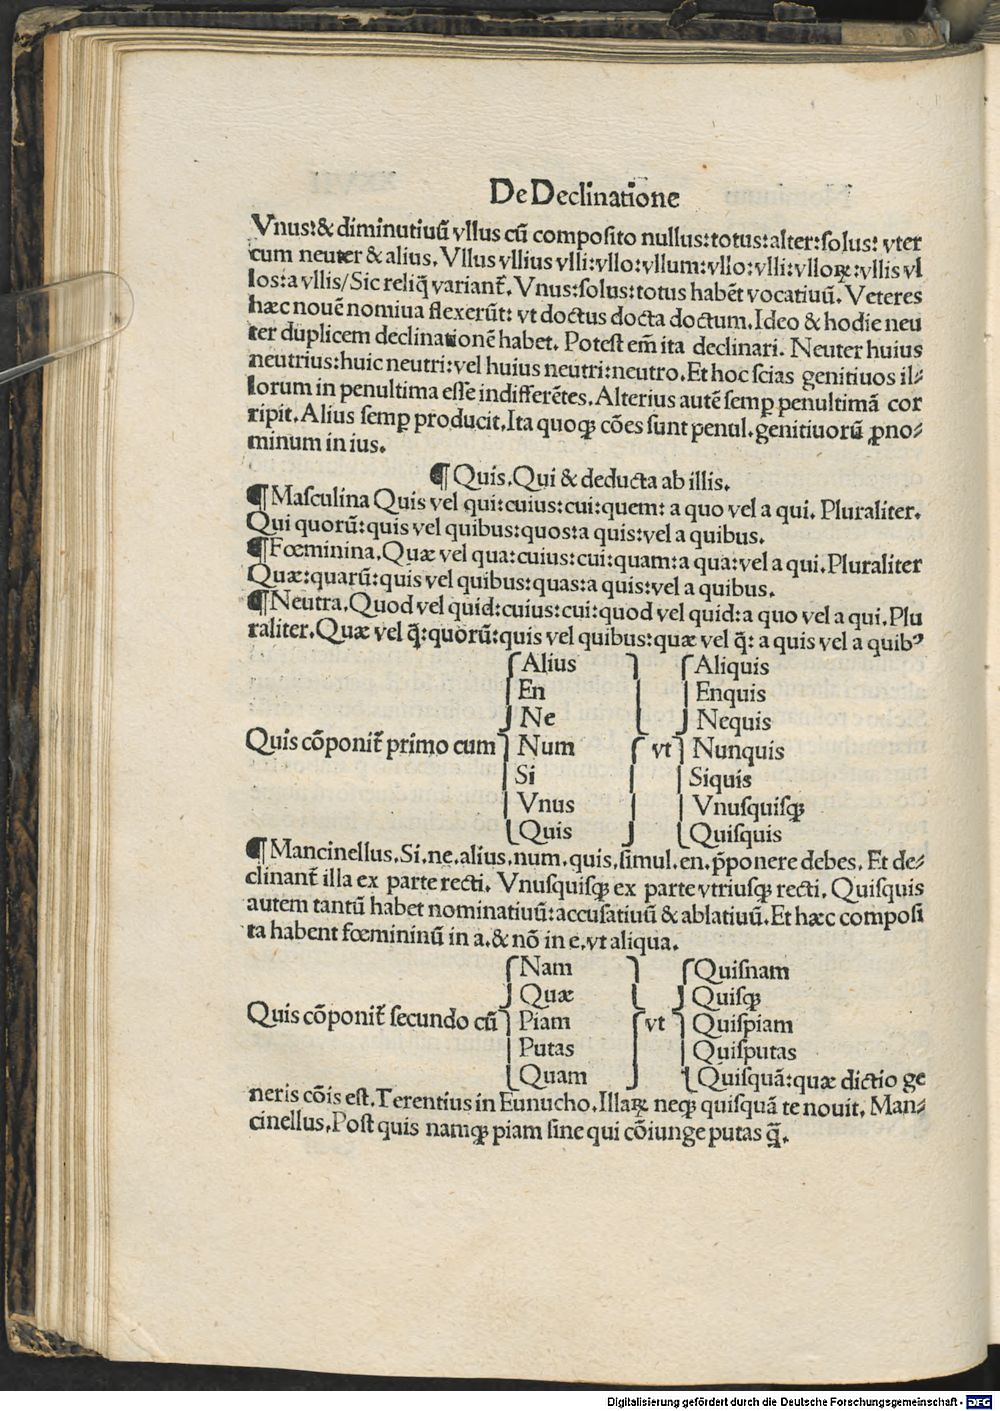 De Declinatione
Vnus:& diminutiuũ vllus cũ composito nullus:totus:alter:solus: vter
cum neuter & alius. Vllus vllius vlli:vllo:vllum:vllo:vlli:vlloꝝ:vllis vl
los:a vllis/Sic reliq̃ variant᷑. Vnus:solus:totus habẽt vocatiuũ. Veteres
hæc nouẽ nomiua flexerũt: vt doctus docta doctum. Ideo & hodie neu
ter duplicem declinationẽ habet. Potest em̃ ita declinari. Neuter huius
neutrius:huic neutri:vel huius neutri:neutro. Et hoc scias genitiuos il⸗
lorum in penultima esse indifferẽtes. Alterius autẽ semꝑ penultimã cor
ripit. Alius semꝑ producit. Ita quoqꝫ cões sunt penul. genitiuorũ ꝓno⸗
minum in ius.
¶ Quis. Qui & deducta ab illis.
¶ Masculina Quis vel qui:cuius:cui:quem: a quo vel a qui. Pluraliter.
Qui quorũ:quis vel quibus:quos:a quis:vel a quibus.
¶ Fœminina. Quæ vel qua:cuius:cui:quam:a qua:vel a qui. Pluraliter
Quæ:quarũ:quis vel quibus:quas:a quis:vel a quibus.
¶ Neutra. Quod vel quid:cuius:cui:quod vel quid:a quo vel a qui. Plu
raliter. Quæ vel q̃:quorũ:quis vel quibus:quæ vel q̃: a quis vel a quibꝰ
Alius Aliquis
En Enquis
Ne Nequis
Quis cõponit᷑ primo cum Num vt Nunquis
Si Siquis
Vnus Vnusquisqꝫ
Quis Quisquis
¶ Mancinellus. Si. ne. alius. num. quis. simul. en. p̃ponere debes. Et de⸗
clinant᷑ illa ex parte recti. Vnusquisqꝫ ex parte vtriusqꝫ recti. Quisquis
autem tantũ habet nominatiuũ:accusatiuũ & ablatiuũ. Et hæc composi
ta habent fœmininũ in a. & nõ in e. vt aliqua.
Nam Quisnam
Quæ Quisqꝫ
Quis cõponit᷑ secundo cũ Piam vt Quispiam
Putas Quisputas
Quam Quisquã:quæ dictio ge
neris cõis est. Terentius in Eunucho. Illaꝝ neqꝫ quisquã te nouit. Man⸗
cinellus. Post quis namqꝫ piam sine qui cõiunge putas q̃.
Digitalisierung gefördert durch die Deutsche Forschungsgemeinschaft - DFG